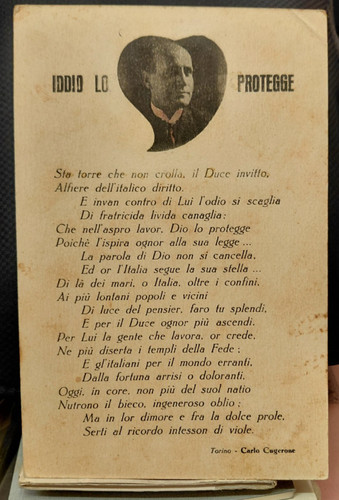 IDDIO LO PROTEGGE
Sta torre che non crolla, il Duce invitto,
Alfiere dell'italico diritto.
E invan contro di Lui l'odio si scaglia
Di fratricida livida canaglia:
Che nell'aspro lavor, Dio lo protegge
Poichè l'ispira ognor alla sua legge ...
La parola di Dio non si cancella,
Ed or l'Italia segue la sua stella ...
Di là dei mari, o Italia, oltre i confini,
Ai più lontani popoli e vicini
Di luce del pensier, faro tu splendi,
E per il Duce ognor più ascendi.
Per Lui la gente che lavora, or crede,
Ne più diserta i templi della Fede;
E gl'italiani per il mondo erranti,
Dalla fortuna arrisi o doloranti,
Oggi, in core, non più del suol natio
Nutrono il bieco, ingeneroso oblio;
Ma in lor dimore e fra la dolce prole,
Serti al ricordo intesson di viole.
Torino - Carlo Cugerone